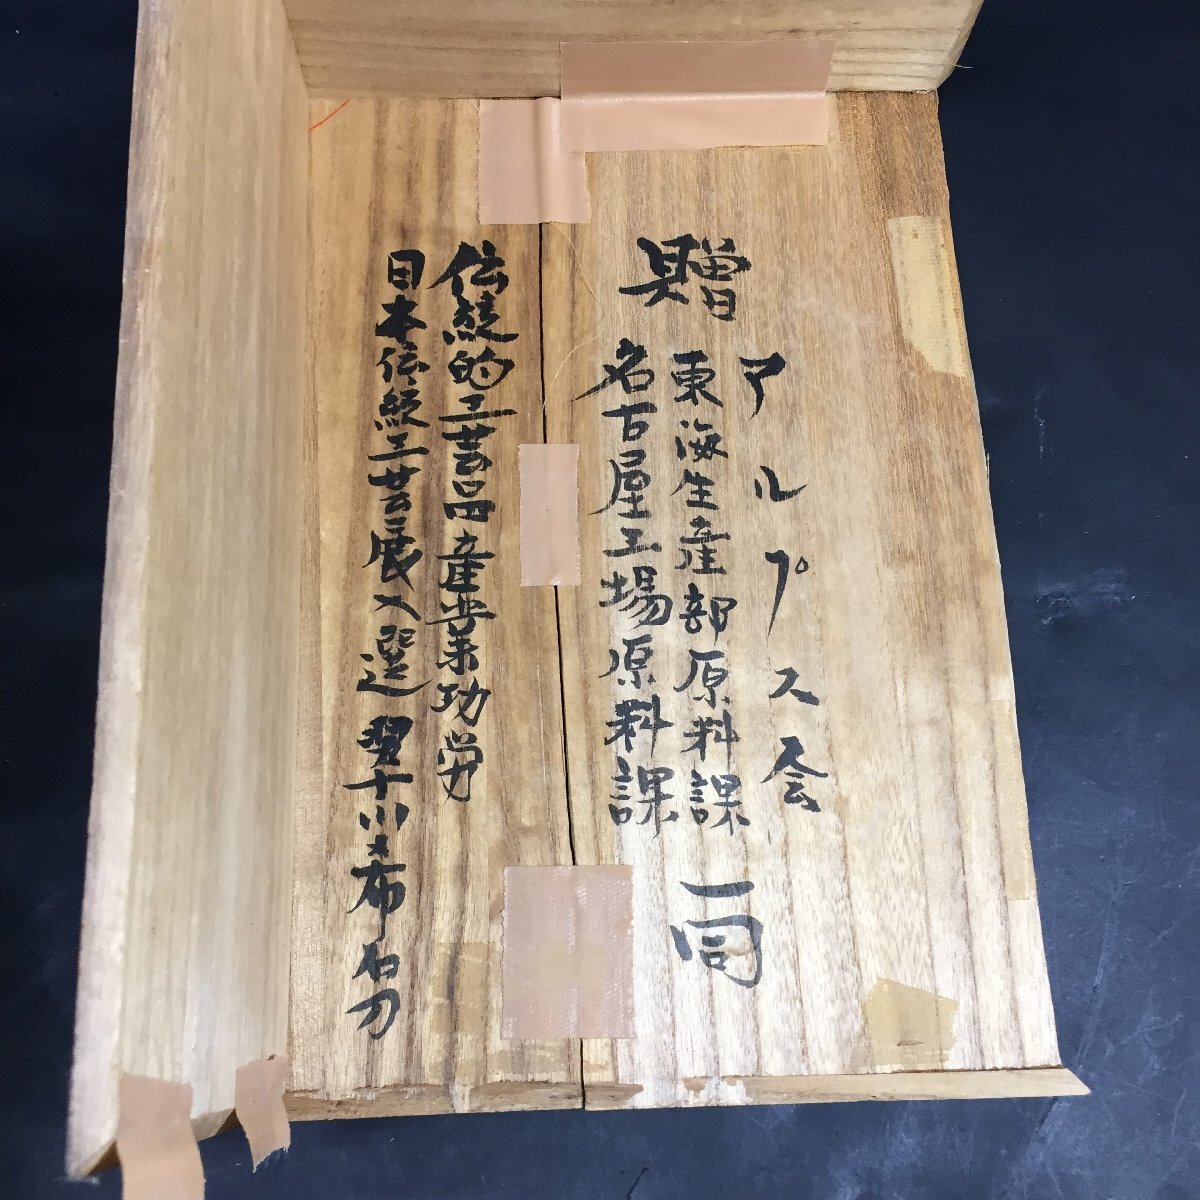 贈
アルプス会
東海生産部原料課
名古屋工場原料課
一同
伝統的工芸品産業功労
日本伝統工芸展入選